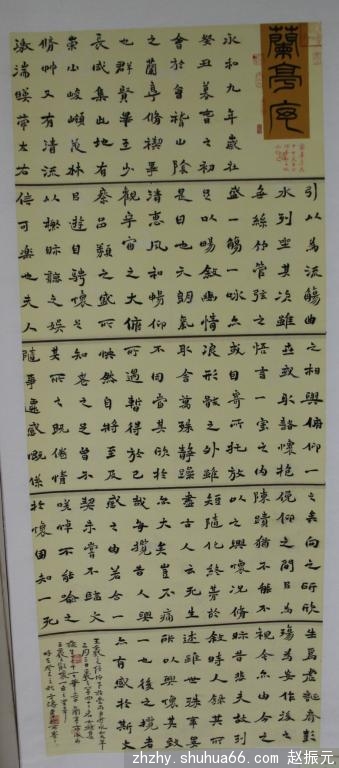 蘭亭序
永和九年歲在
癸丑暮春之初
會於會稽山陰
之蘭亭脩禊事
也群賢畢至少
長咸集此地有
崇山峻領茂林
脩竹又有清流
激湍暎帶左右
引以為流觴曲
水列坐其次雖
無絲竹管弦之
盛一觴一詠亦
足以暢敘幽情
是日也天朗氣
清惠風和暢仰
觀宇宙之大俯
察品類之盛所
以遊目騁懷足
以極視聽之娛
信可樂也夫人
之相與俯仰一
世或取諸懷抱
悟言一室之內
或因寄所託放
浪形骸之外雖
取舍萬殊靜躁
不同當其欣於
所遇暫得於己
怏然自足曾不
知老之將至及
其所之既倦情
隨事遷感慨係
之矣向之所欣
俛仰之間已為
陳跡猶不能不
以之興懷況脩
短隨化終期於
盡古人云死生
亦大矣豈不痛
哉每攬昔人興
感之由若合一
契未嘗不臨文
嗟悼不能喻之
於懷固知一死
生為虛誕齊彭
殤為妄作後之
視今亦由今之
視昔悲夫故列
敘時人錄其所
述雖世殊事異
所以興懷其致
一也後之攬者
亦有感於斯文
zhzhy.shuhua66.com 赵振元